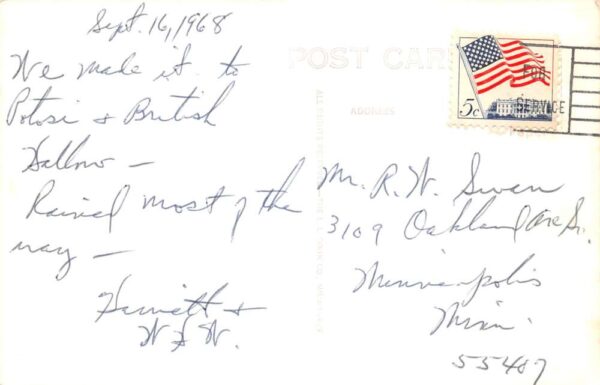 Sept. 16, 1968
We made it to
Potosi & British
Hallow —
Rained most of the
way —
Harriett &
W. S. W.
POST CARD
ADDRESS
5c
FOR
SERVICE
Mr. R. W. Swan
3109 Oakland Ave So.
Minneapolis
Minn.
55407